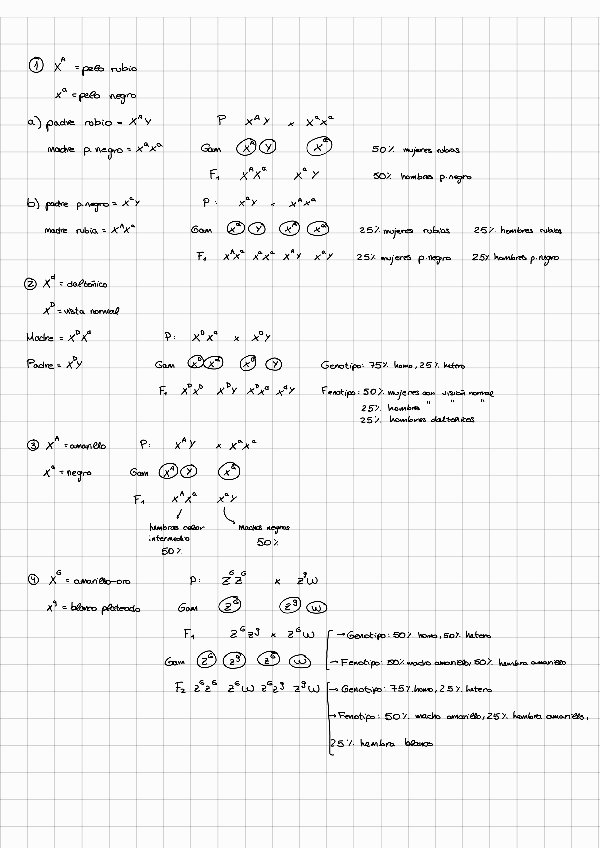 ① Xᴬ = pelo rubio
Xᵃ = pelo negro
a) padre rubio = XᴬY P XᴬY x XᵃXᵃ
Madre p. negro = XᵃXᵃ Gam Xᴬ Y Xᵃ 50% mujeres rubias
F₁ XᴬXᵃ XᵃY 50% hombres p. negro
b) padre p. negro = XᵃY P: XᵃY x XᴬXᵃ
madre rubia = XᴬXᵃ Gam Xᵃ Y Xᴬ Xᵃ 25% mujeres rubias 25% hombres rubios
F₁ XᴬXᵃ XᵃXᵃ XᴬY XᵃY 25% mujeres p. negro 25% hombres p. negro
② Xᵈ = daltónico
Xᴰ = vista normal
Madre = XᴰXᵈ P: XᴰXᵈ x XᴰY
Padre = XᴰY Gam Xᴰ Xᵈ Xᴰ Y Genotipo: 75% homo, 25% hetero
F₁ XᴰXᴰ XᴰY XᴰXᵈ XᵈY Fenotipo: 50% mujeres con visión normal
25% hombres " " "
25% hombres daltónicos
③ Xᴬ = amarillo P: XᴬY x XᵃXᵃ
Xᵃ = negro Gam Xᴬ Y Xᵃ
F₁ XᴬXᵃ XᵃY
hembras color Machos negros
intermedio 50%
50%
④ Xᴳ = amarillo-oro P: ZᴳZᴳ x ZᵍW
Xᵍ = blanco plateado Gam Zᴳ Zᵍ W
F₁ ZᴳZᵍ x ZᴳW → Genotipo: 50% homo, 50% hetero
Gam Zᴳ Zᵍ Zᴳ W → Fenotipo: 50% macho amarillo, 50% hembra amarillo
F₂ ZᴳZᴳ ZᴳW ZᴳZᵍ ZᵍW → Genotipo: 75% homo, 25% hetero
→ Fenotipo: 50% macho amarillo, 25% hembra amarillo,
25% hembra blanco